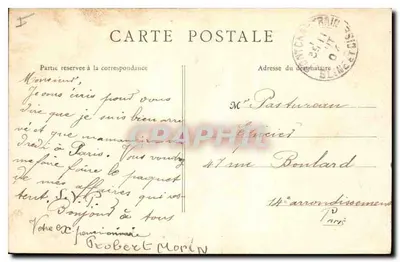 CARTE POSTALE
Partie réservée à la correspondance
Adresse du destinataire
Monsieur,
Je vous écris pour vous
dire que je suis bien arri
vé et que maman
à Paris. Vous
me faire faire le paquet
de mes affaires qui
S.V.P.
Bonjour à tous
Votre ex pensionnaire
Robert Morin
Mr Pastureau
47 rue Boulard
14e arrondissement
Paris